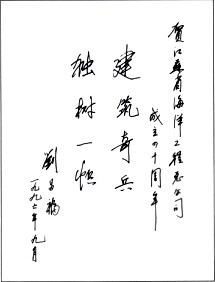 贺江苏省海洋工程总公司
成立四十周年
建筑奇兵
独树一帜
刘
一九九七年九月